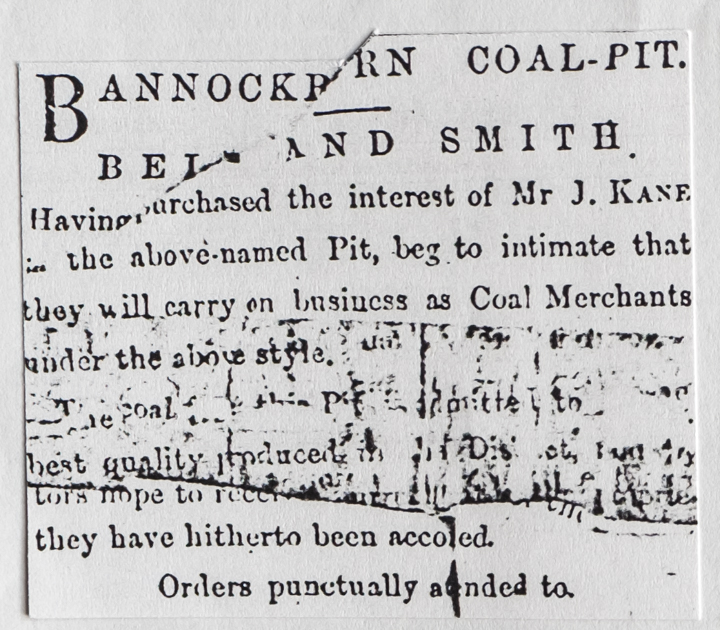 BANNOCKB RN COAL-PIT.
BEL AND SMITH.
Having purchased the interest of Mr J. KANE
in the above-named Pit, beg to intimate that
they will carry on business as Coal Merchants
under the above style.
The coal this Pit to
best quality produced in
tors hope to
they have hitherto been accoled.
Orders punctually anded to.